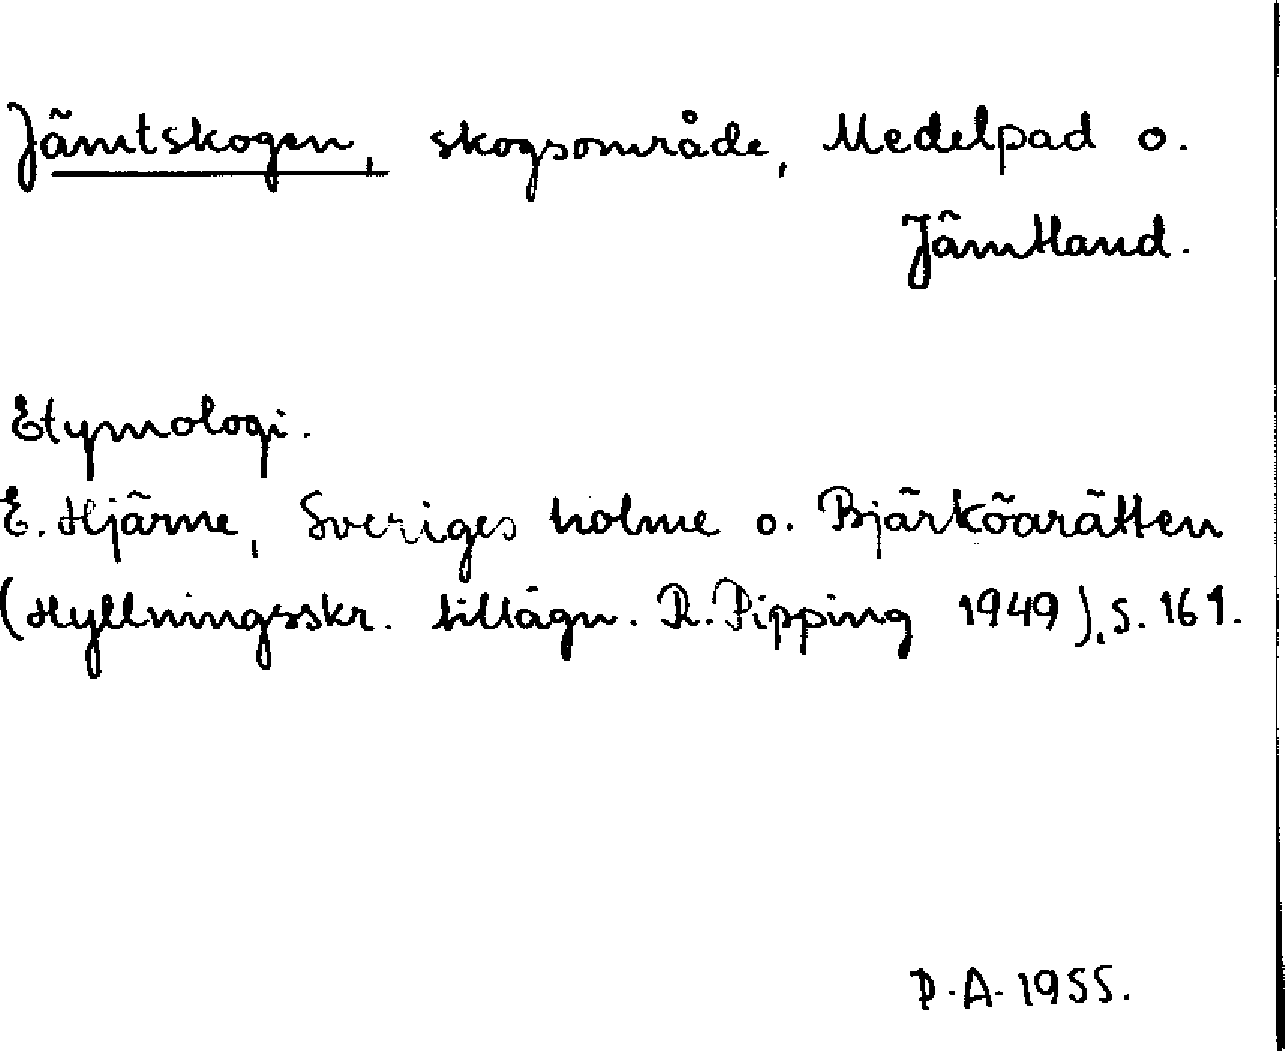 Jämtskogen, skogsområde, Medelpad o.
Jämtland.
Etymologi.
E. Hjärne, Sveriges holme o. Bjärköarätten
(Hyllningsskr. tillägn. R. Pipping 1949), s. 161.
P.A. 1955.